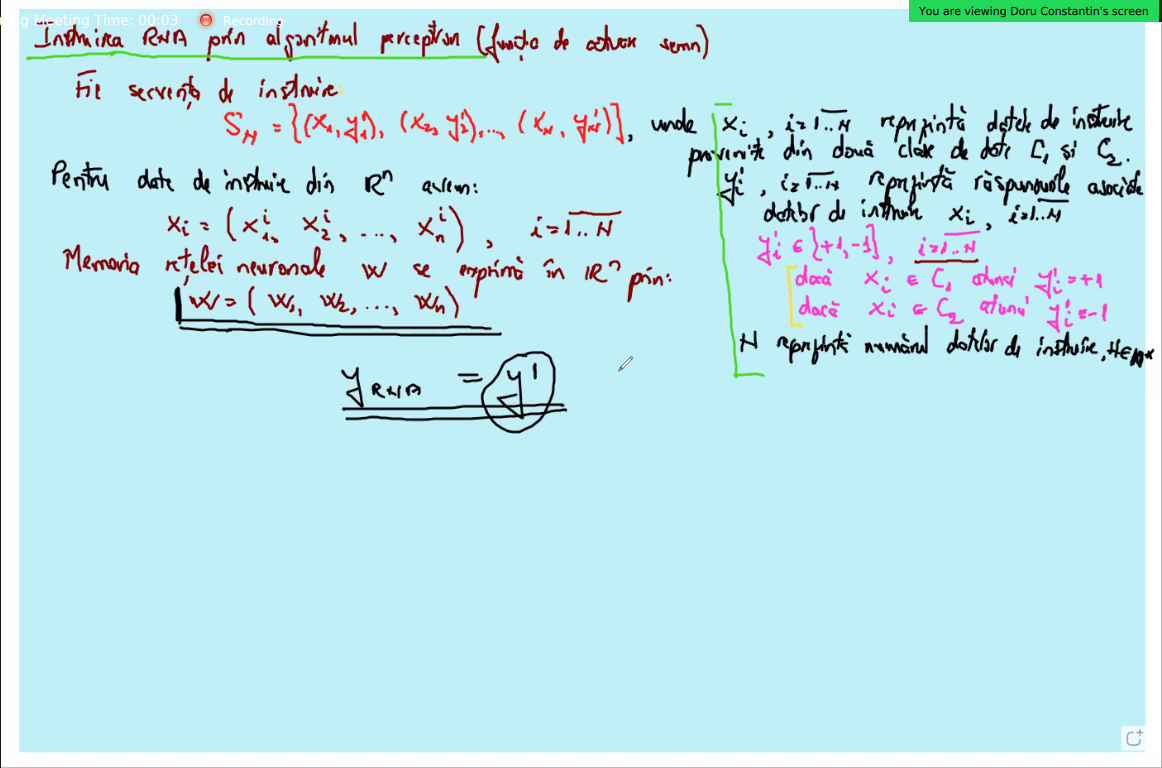 g Meeting Time: 00:03 Recording
You are viewing Doru Constantin's screen
Instruirea RNA prin algoritmul perceptron (funcția de activare semn)
Fie secvența de instruire:
S_N = {(x_1, y'_1), (x_2, y'_2), ..., (x_N, y'_N)}, unde
x_i, i=1..N reprezintă datele de instruire
provenite din două clase de date C_1 și C_2.
y'_i, i=1..N reprezintă răspunsurile asociate
datelor de instruire x_i, i=1..N
y'_i ∈ {+1,-1}, i=1..N
dacă x_i ∈ C_1 atunci y'_i=+1
dacă x_i ∈ C_2 atunci y'_i=-1
N reprezintă numărul datelor de instruire, N∈N*
Pentru date de instruire din R^n avem:
x_i = (x_1^i, x_2^i, ..., x_n^i), i=1..N
Memoria rețelei neuronale W se exprimă în R^n prin:
W = (W_1, W_2, ..., W_n)
y_RNA = y'